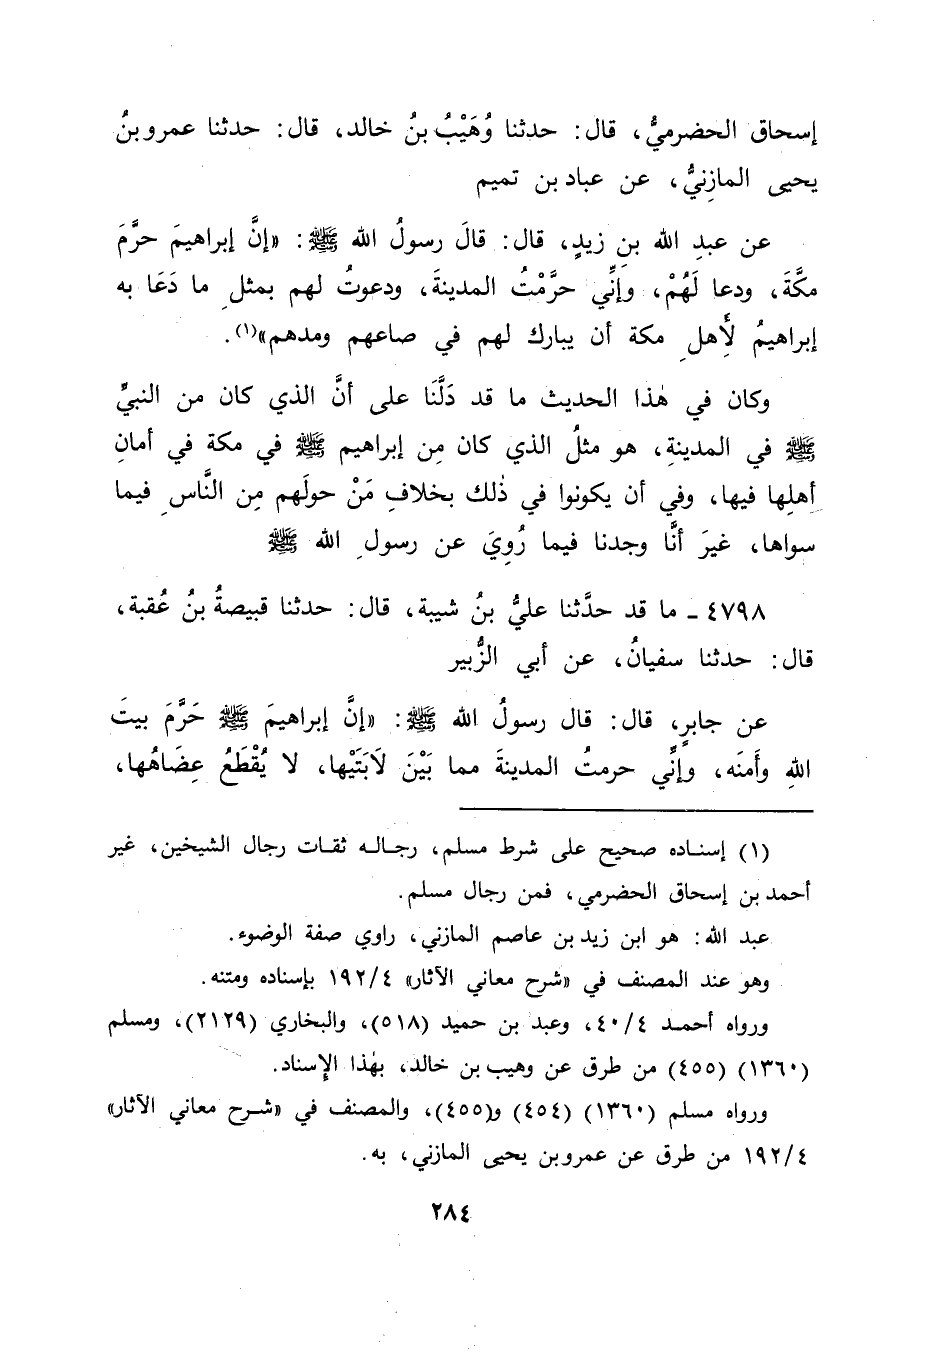 إسحاق الحضرميُّ، قال: حدثنا وُهَيْبُ بنُ خالد، قال: حدثنا عمرو بنُ
يحيى المازِنيُّ، عن عباد بن تميم
عن عبدِ الله بنِ زيدٍ، قال: قالَ رسولُ الله ﷺ: «إنَّ إبراهيمَ حرَّمَ
مكَّةَ، ودعا لَهُمْ، وإنِّي حرَّمْتُ المدينةَ، ودعوتُ لهم بمثلِ ما دَعَا به
إبراهيمُ لأَهلِ مكة أن يبارك لهم في صاعهم ومدهم»(١).
وكان في هٰذا الحديث ما قد دَلَّنَا على أنَّ الذي كان من النبيِّ
ﷺ في المدينةِ، هو مثلُ الذي كان مِن إبراهيم ﷺ في مكة في أمانِ
أهلِها فيها، وفي أن يكونوا في ذٰلك بخلافِ مَنْ حولَهم مِن النَّاسِ فيما
سواها، غيرَ أنَّا وجدنا فيما رُوِيَ عن رسولِ الله ﷺ
٤٧٩٨ ـ ما قد حدَّثنا عليُّ بنُ شيبة، قال: حدثنا قبيصةُ بنُ عُقبة،
قال: حدثنا سفيانُ، عن أبي الزُّبير
عن جابرٍ، قال: قال رسولُ الله ﷺ: «إنَّ إبراهيمَ ﷺ حَرَّمَ بيتَ
اللهِ وأَمنَه، وإنِّي حرمتُ المدينةَ مما بَيْنَ لَابَتَيْها، لا يُقْطَعُ عِضَاهُها،
(١) إسناده صحيح على شرط مسلم، رجاله ثقات رجال الشيخين، غير
أحمد بن إسحاق الحضرمي، فمن رجال مسلم.
عبد الله: هو ابن زيد بن عاصم المازني، راوي صفة الوضوء.
وهو عند المصنف في «شرح معاني الآثار» ١٩٢/٤ بإسناده ومتنه.
ورواه أحمد ٤٠/٤، وعبد بن حميد (٥١٨)، والبخاري (٢١٢٩)، ومسلم
(١٣٦٠) (٤٥٥) من طرق عن وهيب بن خالد، بهٰذا الإسناد.
ورواه مسلم (١٣٦٠) (٤٥٤) و(٤٥٥)، والمصنف في «شرح معاني الآثار»
١٩٢/٤ من طرق عن عمرو بن يحيى المازني، به.
٢٨٤